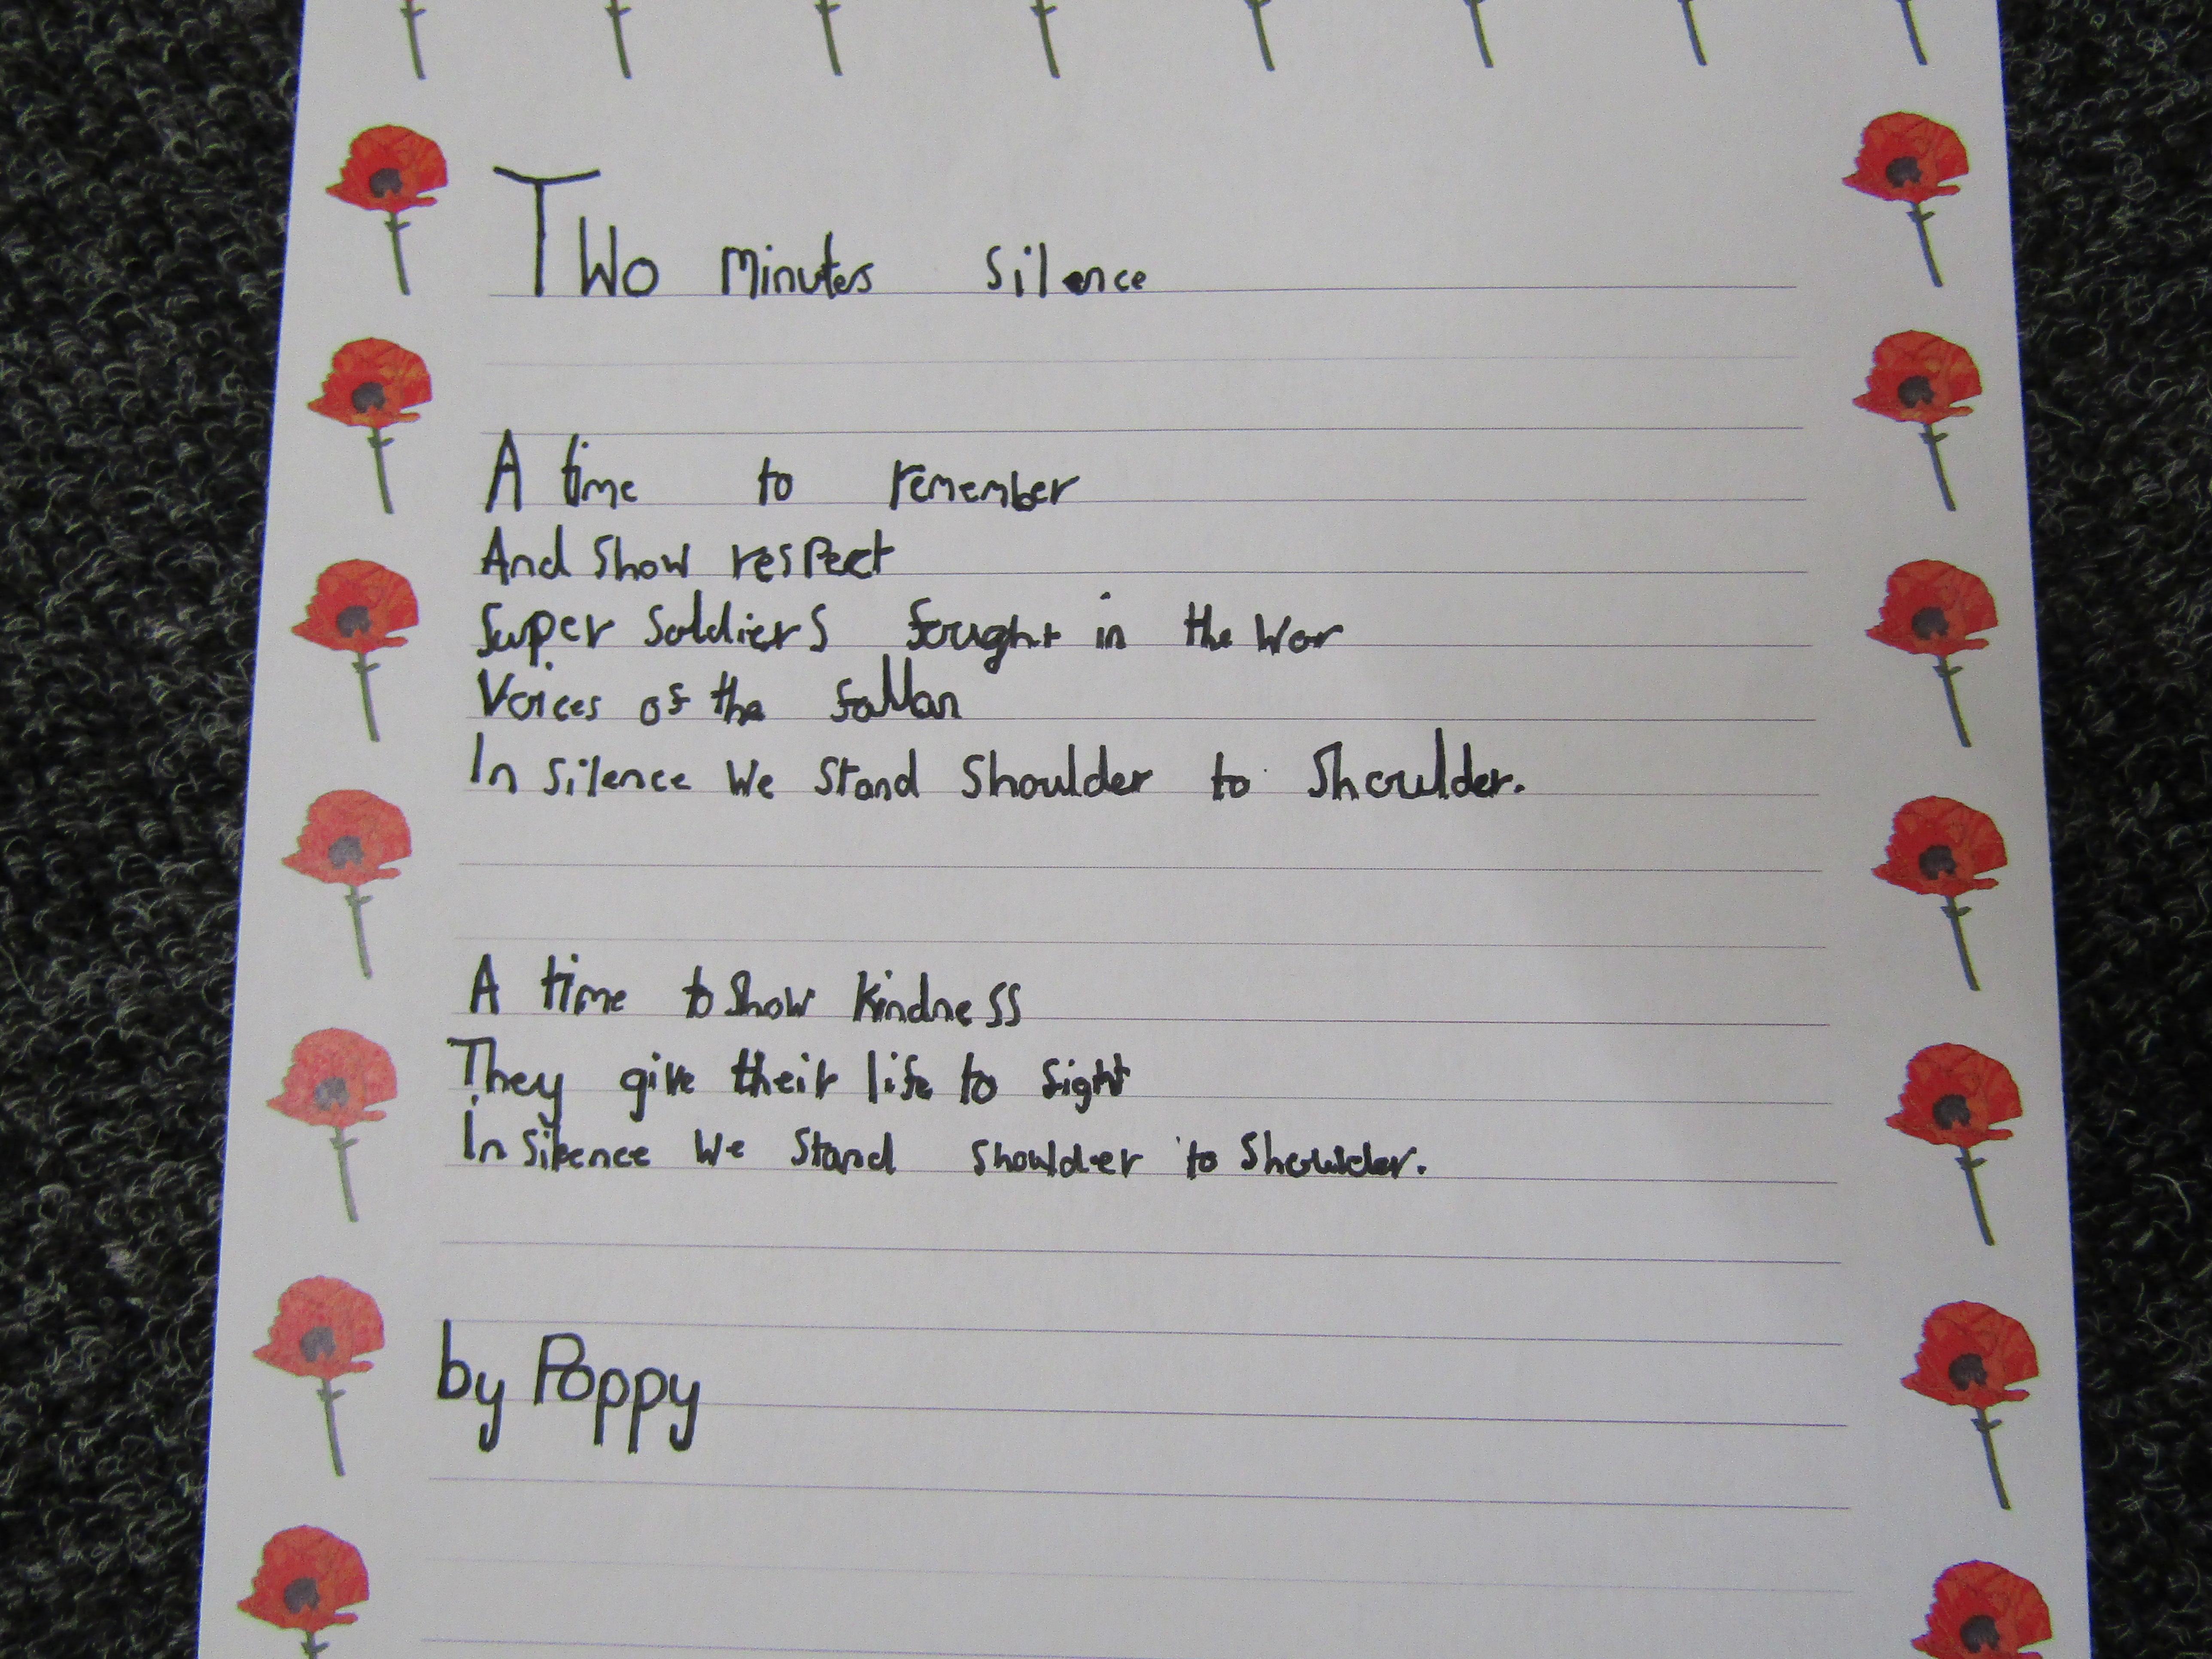 Two minutes silence
A time to remember
And show respect
Super soldiers fought in the war
Voices of the fallan
In silence we stand shoulder to shoulder.
A time to show kindness
They give their life to fight
In silence we stand shoulder to shoulder.
by Poppy